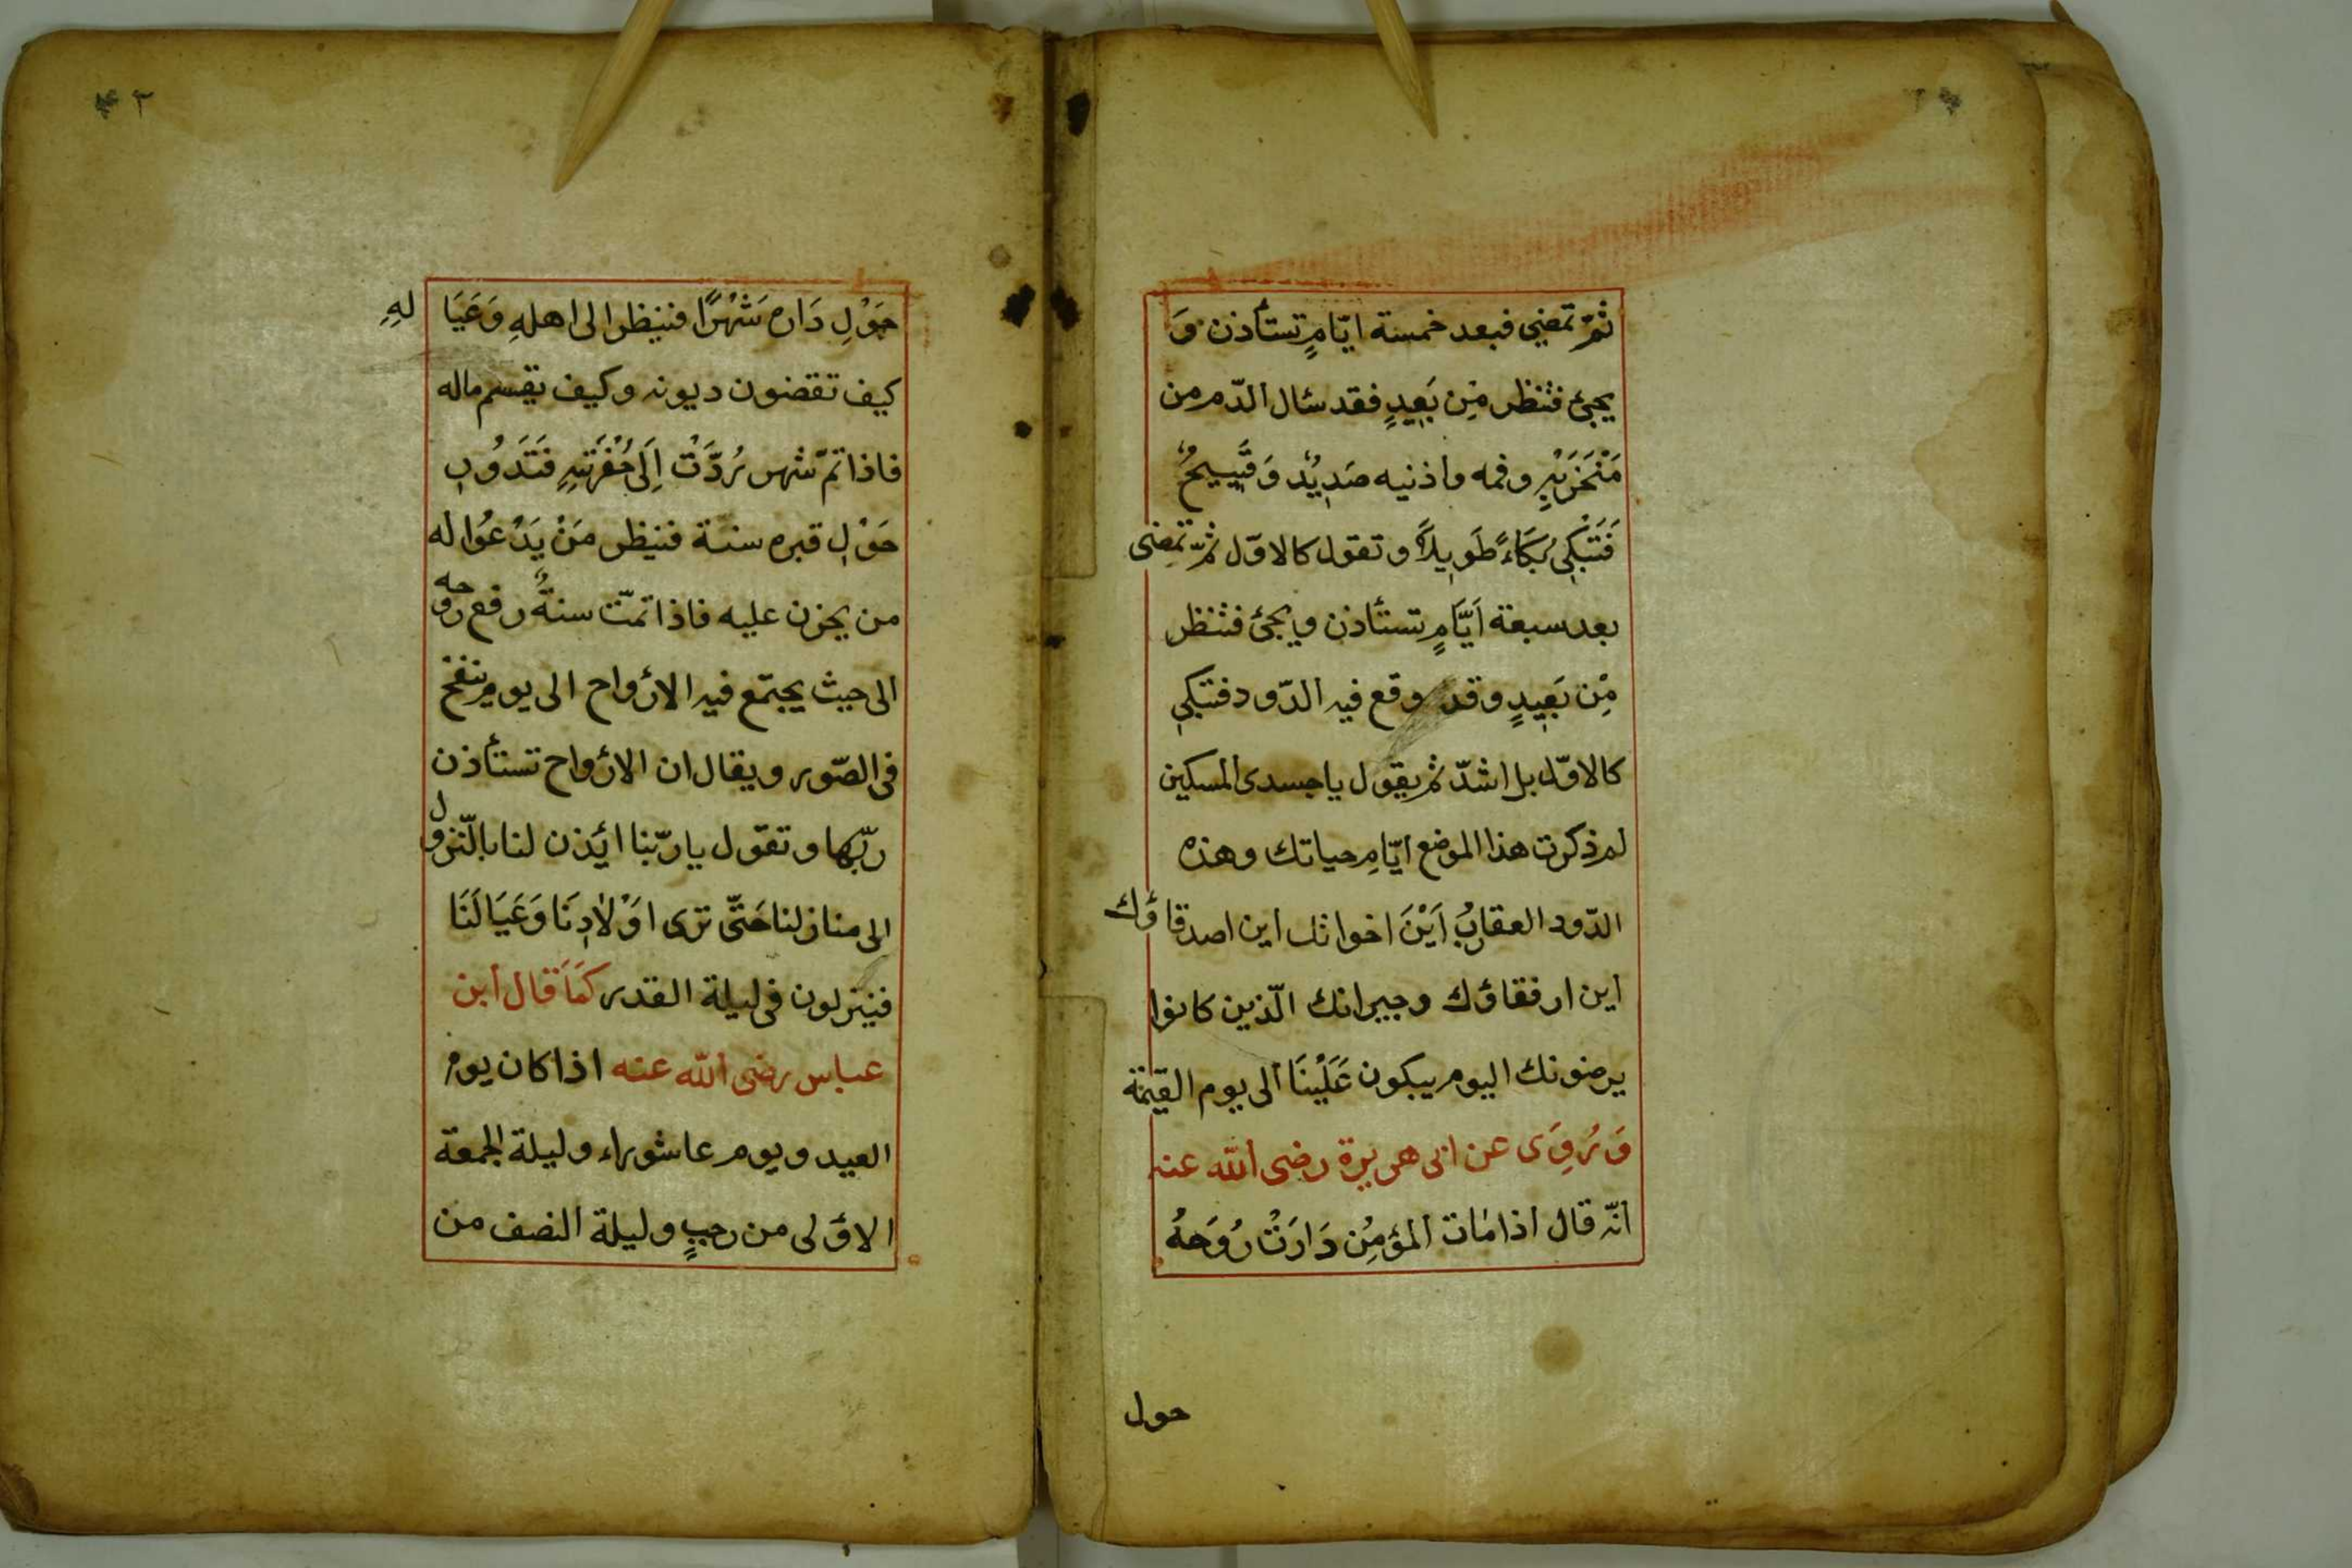 ثمّ تمضي فبعد خمسة ايّامٍ تستأذن وَ
يجئ فتنظر مّن بَعِيدٍ فقد سٔال الدّم من
مَنْخَرَيْهِ وفمه واذنيه صَدِيْدٌ وَقَيِيحٌ
فَتَبْكِي بُكَاءً طَوِيلًا وتقول كالاوّل ثمّ تمضى
بعد سبعة اَيَّامٍ تستأذن ويجئ فتنظر
مّن بَعِيدٍ وقد وقع فيه الدّود فتبكي
كالاوّل بل اشدّ ثم يقول يا جسدى المسكين
لم ذكرت هذا الموضع ايّامِ حياتك وهذه
الدّود العقاربُ اَيْنَ اخوانك اين اصدقاؤك
اين ارفقاؤك وجيرانك الّذين كانوا
يرضونك اليوم يبكون عَلَيْنَا الى يوم القيٰمة
وَيُروِى عن ابى هريرة رضى الله عنه
انّه قال اذا مات المؤمِن دَارَتْ رُوحَهُ
حول
٤٢
حَوْلِ دَاره شَهْرًا فينظر الى اهلهِ وَعَيَالهِ
كيف تقضون ديونه وكيف يقسم ماله
فاذا تمّ شهر رُدَّتْ اِلَى حُفْرَتِهِ فَتَدُوُبِ
حَوْلِ قبره سنة فينظر مَنْ يَدْعُوا له
من يحزن عليه فاذا تمّت سنةٌ رفع روحه
الى حيث يجتمع فيه الارواح الى يوم ينفخ
فى الصّور ويقال ان الارواح تستأذن
ربّها وتقول يا ربّنا ائذن لنا بالنّزول
الى منازلنا حَتَّى ترى اوْلَادِنَا وَعَيَالَنَا
فينزلون فى ليلة القدر كَمَا قال ابن
عباس رضى الله عنه اذا كان يوم
العيد ويوم عاشوراء وليلة الجمعة
الاوْلى من رجبٍ وليلة النصف من